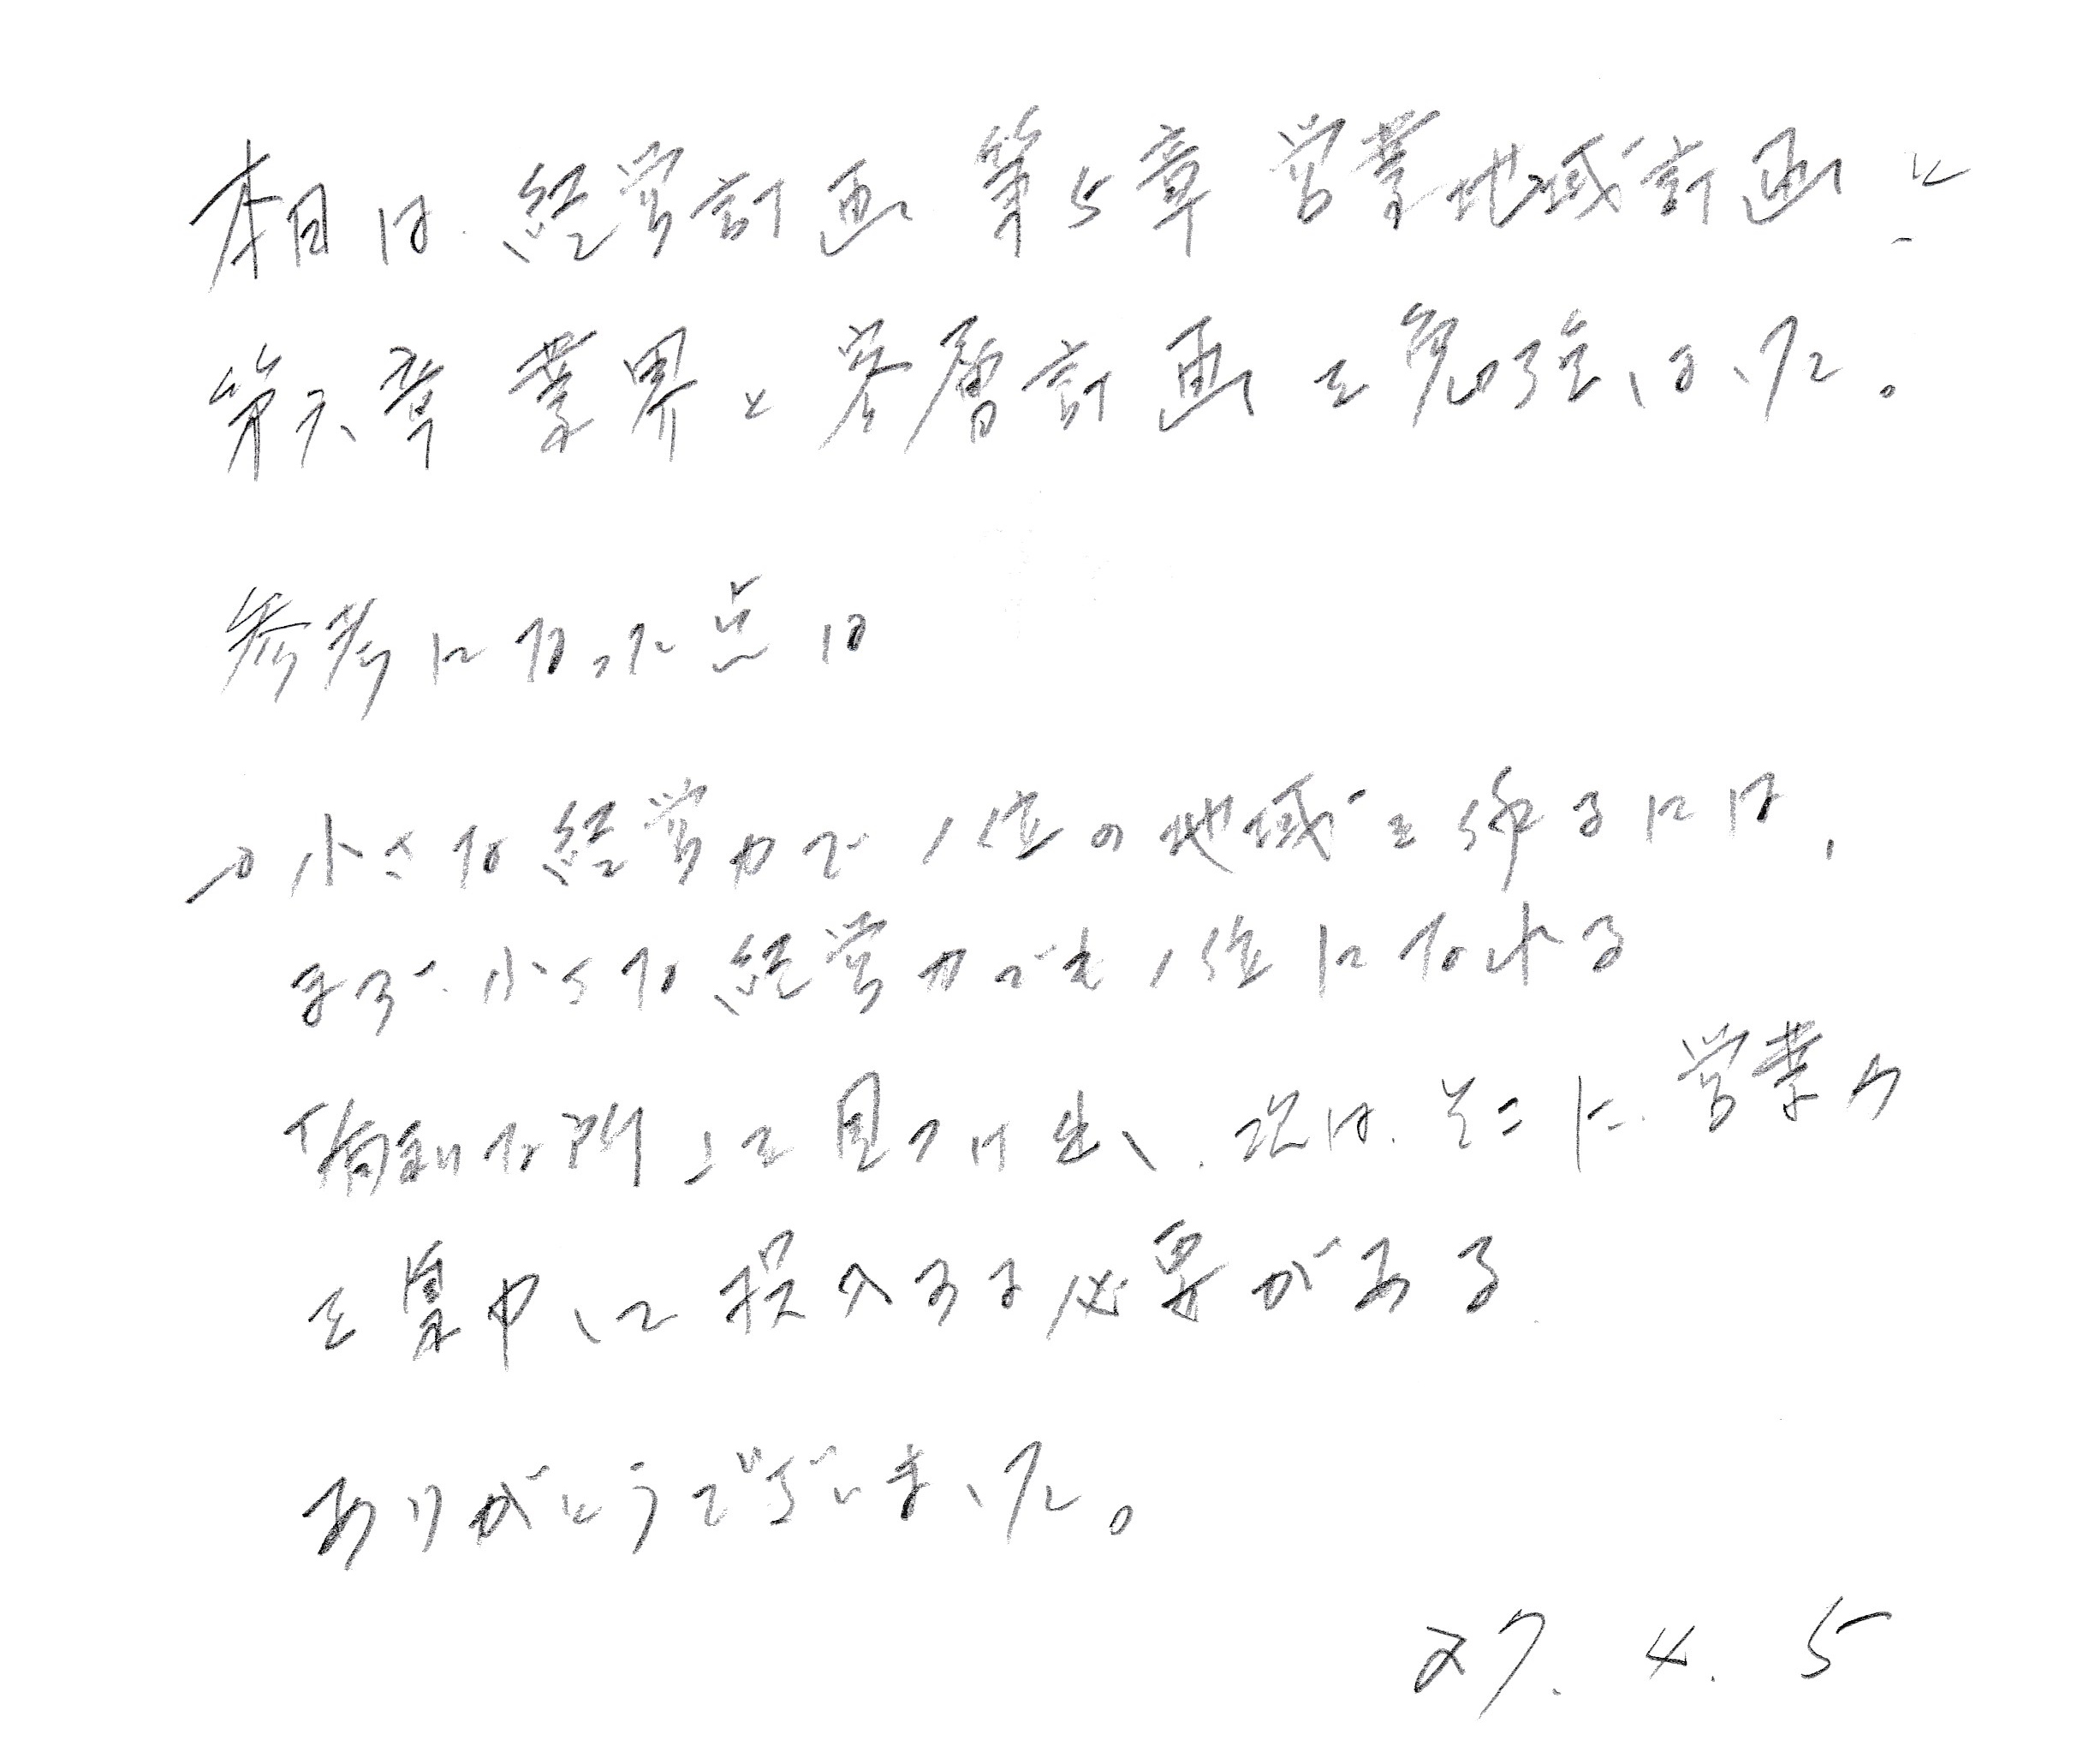 本日は、経営計画 第5章 営業地域計画と
第六章 業界と客層計画を勉強しました。
参考になった点は
→小さな経営力で1位の地域を作るには、
まず、小さな経営力でも1位になれる
「有利な所」を見つけ出し、次は、そこに、営業力
を集中して投入する必要がある
ありがとうございました。
27. 4. 5